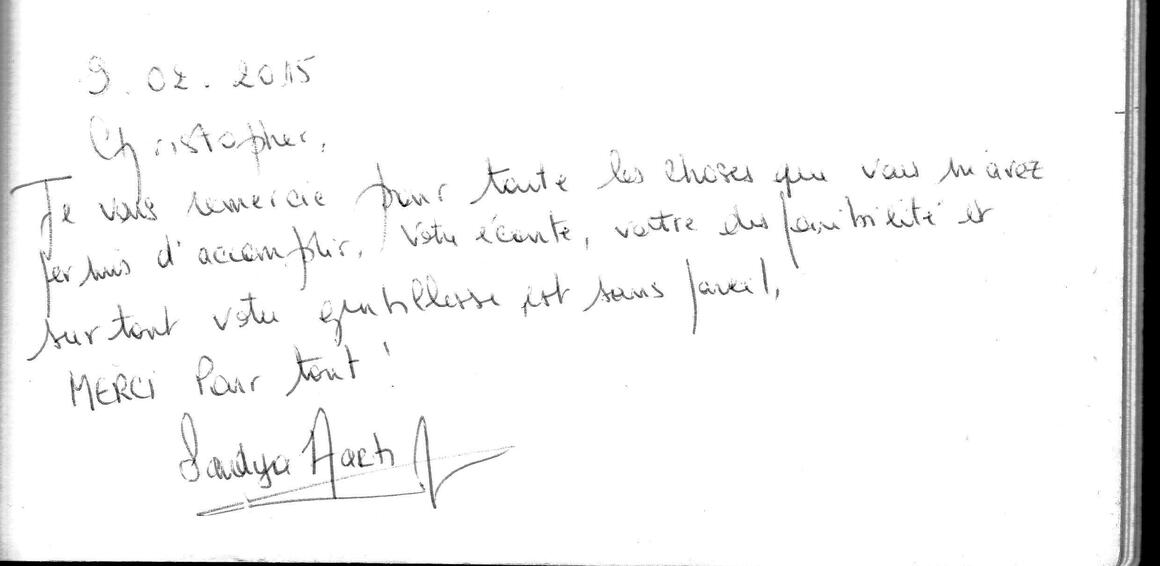 9.02.2015
Christopher,
Je vous remercie pour toute les choses que vous m'avez
permis d'accomplir. Votre écoute, votre disponibilité et
surtout votre gentillesse est sans pareil,
MERCI Pour tout !